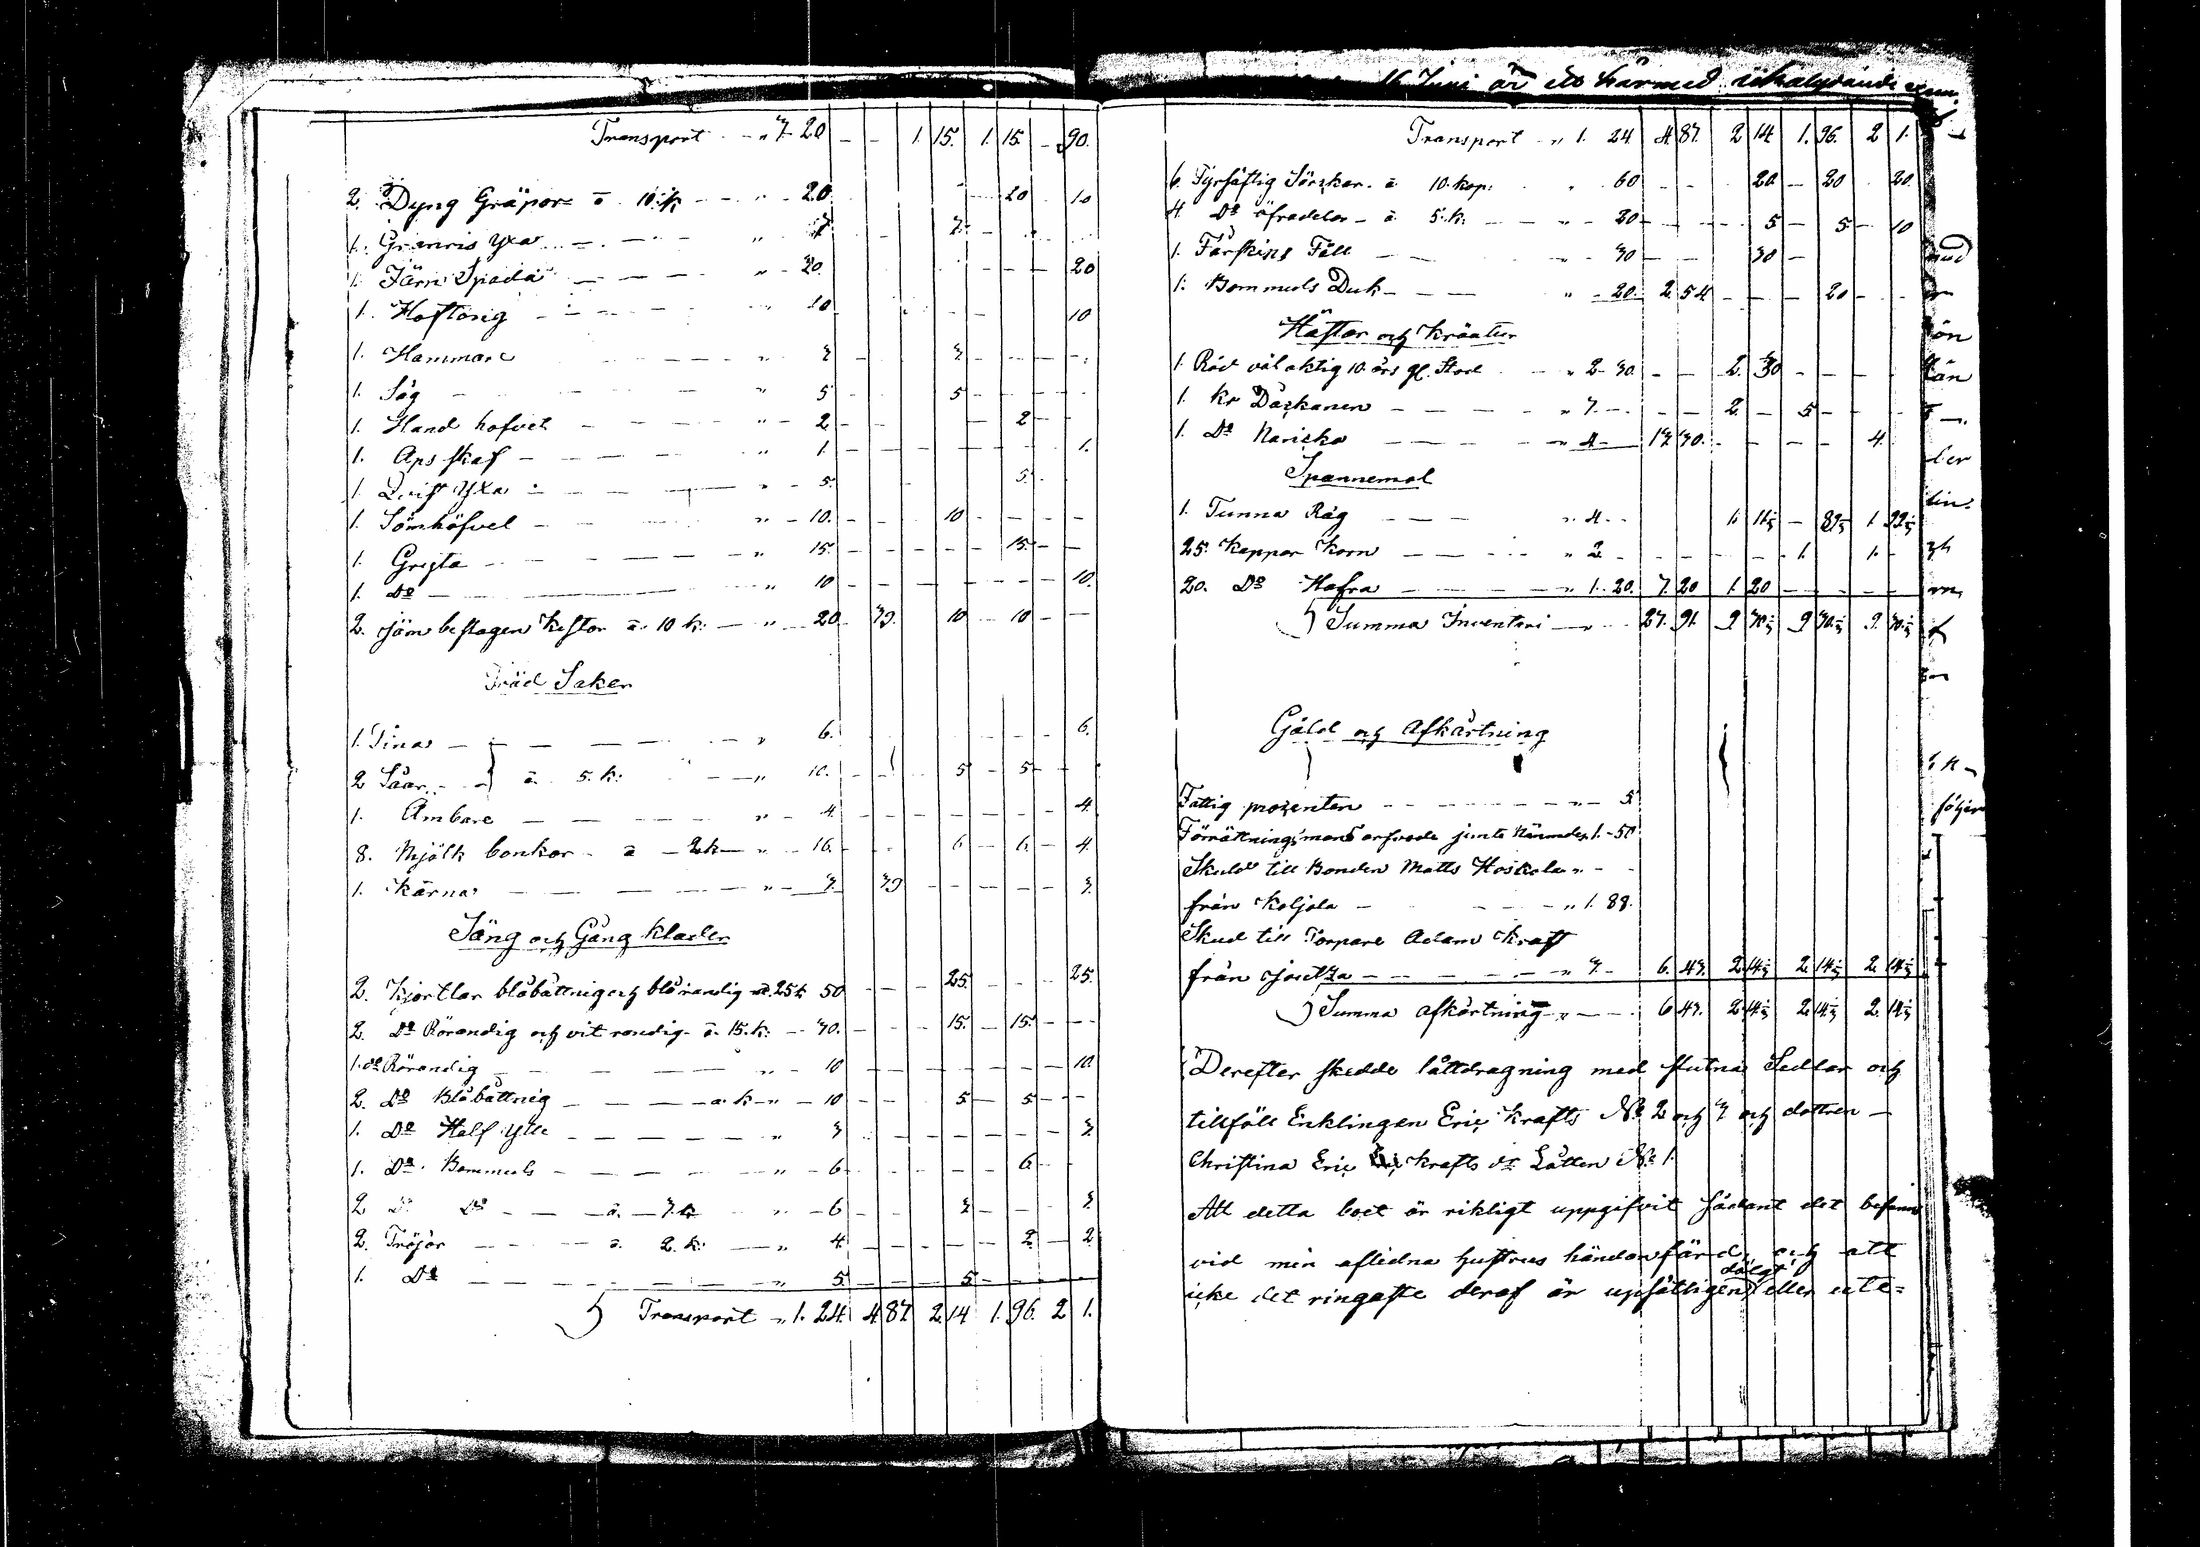 Transport - " 3 20 - - 1. 15. 1. 15. - 90.
2. Dyng Gräpor à 10 k - - - 20. 20 10
1. Granris yxa - - - " 7. 7.
1. Järn Spada - - - - " - 20. 20
1. Hoftång - - - - 10 10
1. Hammare - - " 3 3
1. Såg - - " 5 5
1. Hand hofvel - - - - " - 2 2
1. Aps skaf - - - - " 1. 1.
1. yxa - - - " - 5. 5.
1. Sömhöfvel - - - " - 10. 10
1. Gryta - - - - " 15. 15.
1. Do - - - " 10 10.
2. Järn beslagen Kistor à 10 k. - " - 20 39. 10 10
Träd Saker
1. Tina - - - - - " 6. 6.
2 Såar - à 5. k: - " 10. 5 5
1. Ämbare - - - - " - 4. 4.
8. Mjölk bonkor - à - 2k - " - 16. 6 6 4
1. Kärna - - - - - " - 3. 39 3.
Säng och Gång kläder
2. Kjortlar blåbåttnig och blårandig à 25 k 50 25. 25.
2. Do Rörandig och vit randig à 15. k: - 30. 15. 15.
1. do Rörandig - - - - " - 10 10.
2. Do Blåbåttnig - - - à k " - 10 5 5
1. Do Half ylle - - - - " 3 3.
1. Do Bommuls - - - - " - 6 6
2 Do Do - - à - 3. k " - 6 3 3.
2. Tröjor - - - à 2. k: - " 4. 2 2
1. Do - - - - - " 5. 5
Transport " 1. 24. 4 87. 2 14 1. 96. 2 1.
16 Juni är ett härmed
Transport - " 1. 24. 4 87. 2 14 1. 96. 2 1.
6. Fyrhäftig à 10. kop: " 60 20. 20 20.
4. Do - à 5. k: - - " - 20 5 5 10
1. Fårskins Fäll - - " - 30 30
1. Bommuls Duk - - - " - 20. 2 54 20
Hästar och Kräatur
1. Röd 10 års gl. Stod - " 2 30. 2. 30
1. ko - - - - " 7. - 2 5
1. Do - - - - " 4 - 13 30. 4.
Spannemal
1. Tunna Råg - - - " 4. - 1.
25. Kappar Korn - - - " 2 1. 1.
20. Do Hafra - - - " 1. 20. 7. 20 1. 20
Summa Inventari - " - 27. 91. 9 30⅓ 9 30⅓ 9. 30⅓
Gäld och Afkårtning
Fattig prozenten - - - - " - 5.
Förrättningsmans arfvode jemte Nämndes 1. - 50
Skuld till Bonden Matts Hoskola " -
från Koljola - - - - " 1. 88.
Skud till Torpare Adam Kraft
från - - - - " 3. - 6. 43. 2. 14⅓ 2. 14⅓ 2. 14⅓
Summa afkårtning " - - 6 43. 2. 14⅓ 2. 14⅓ 2. 14⅓
Derefter skedde låttdragning med slutna Sedlar och
tillföll Enklingen Eric Krafts No 2 och 3 och dottren -
Christina Eric Krafts dr Låtten No 1.
Att detta boet är riktigt uppgifvit sådant det befanns
vid min aflidna hustrus händanfärd, och att
dålgt
icke det ringaste deraf är upsåtligen eller ute=